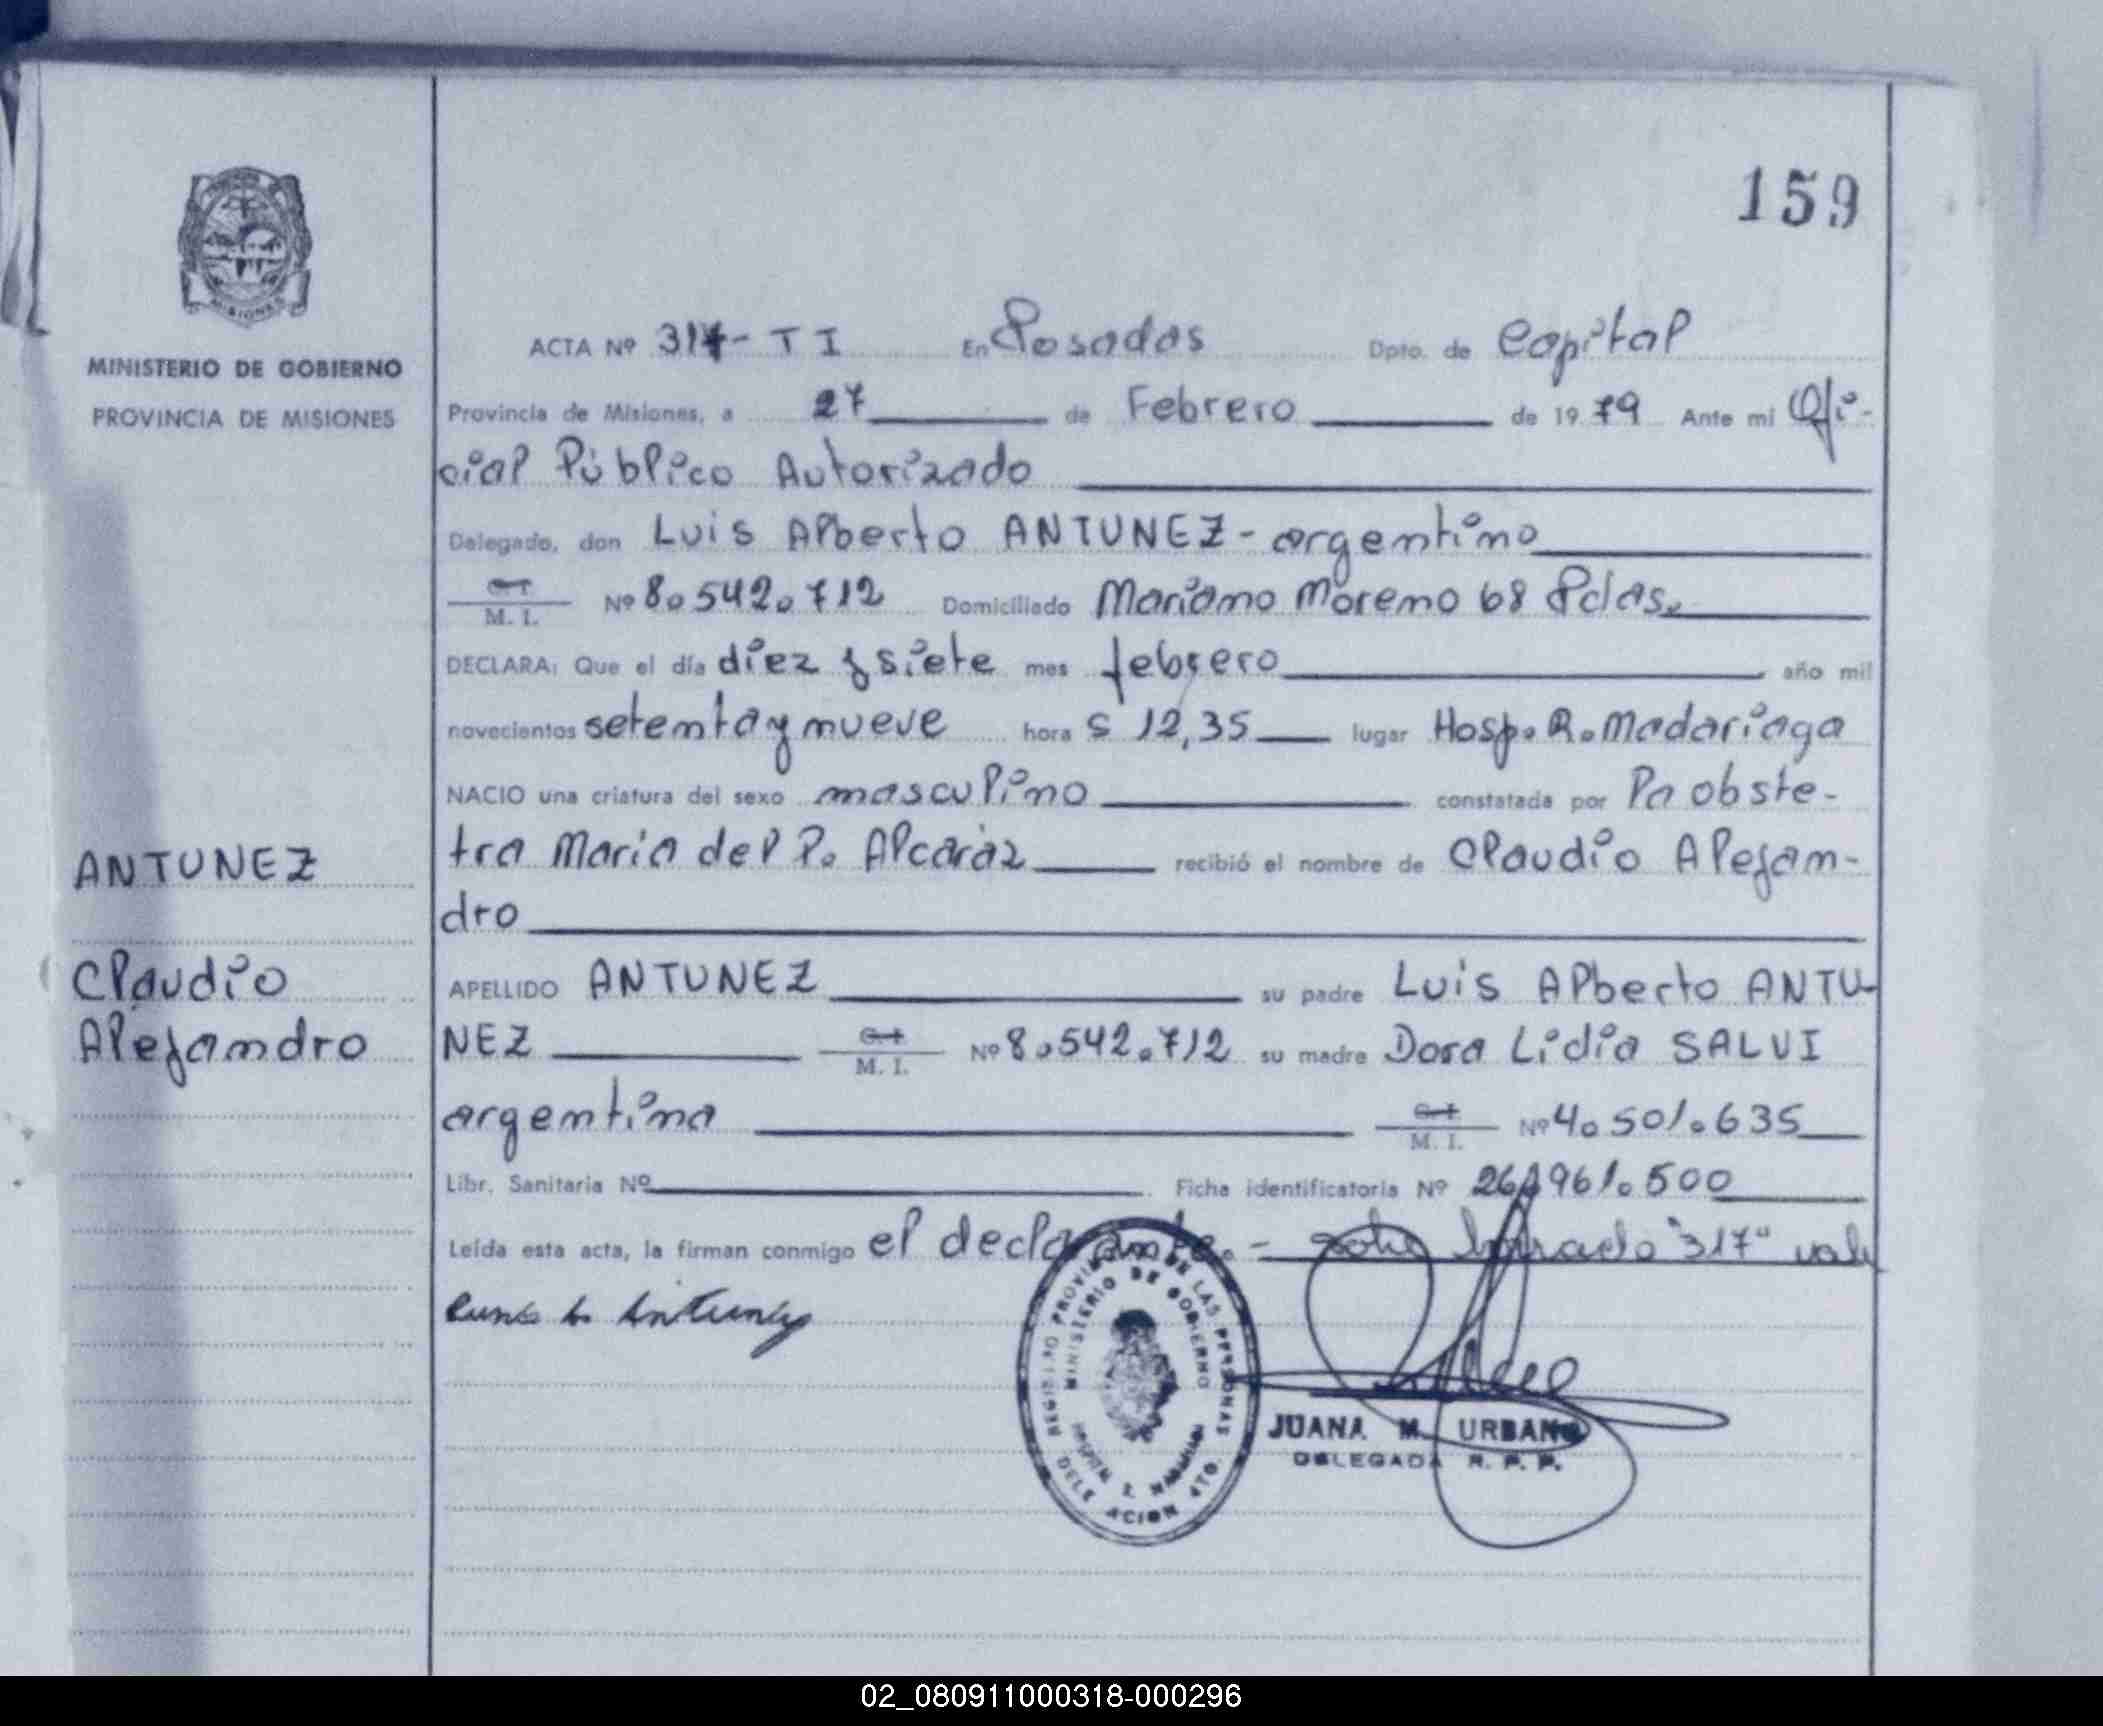 159
MINISTERIO DE GOBIERNO
PROVINCIA DE MISIONES
ACTA Nº 317 - T I En Posadas Dpto. de Capital
Provincia de Misiones, a 27 de Febrero de 1979 Ante mi Ofi-
cial Público Autorizado
Delegado, don Luis Alberto ANTUNEZ - argentino
M. I. Nº 8.542.712 Domiciliado Mariano Moreno 68 Pdas.
DECLARA: Que el día diez y siete mes febrero año mil
novecientos setenta y nueve hora s 12,35 lugar Hosp. R. Madariaga
NACIO una criatura del sexo masculino constatada por la obste-
tra Maria del P. Alcaráz recibió el nombre de Claudio Alejan-
dro
ANTUNEZ
Claudio
Alejandro
APELLIDO ANTUNEZ su padre Luis Alberto ANTU-
NEZ M. I. Nº 8.542.712 su madre Dora Lidia SALVI
argentina M. I. Nº 4.501.635
Libr. Sanitaria Nº Ficha identificatoria Nº 26.961.500
Leída esta acta, la firman conmigo el declarante. - sobre borrado "317" vale
Luis A. Antunez
REGISTRO PROVINCIAL DE LAS PERSONAS
MINISTERIO DE GOBIERNO
HOSPITAL R. MADARIAGA
DELEGACION 4TO.
JUANA M. URBANO
DELEGADA R. P. P.
02_080911000318-000296